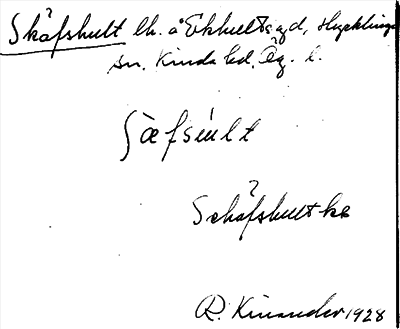 Skåfshult lh. å Ekhults gd, Hycklinge
sn. Kinda hd. Ög. l.
ʃäfsult
Schåfshult ke
R. Kinander 1928